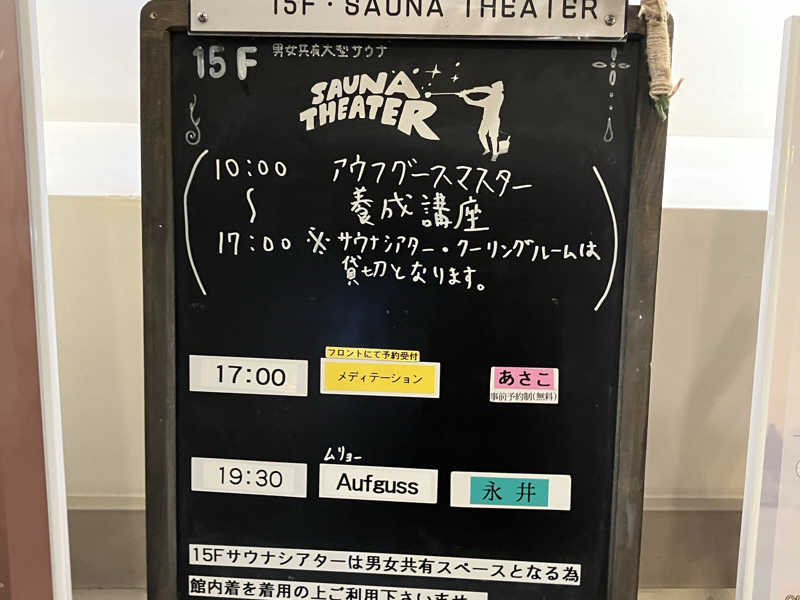 15F・SAUNA THEATER
15F 男女共有大型サウナ
SAUNA
THEATER
10:00 アウフグースマスター
〜 養成講座
17:00 ※サウナシアター・クーリングルームは
貸切となります。
フロントにて予約受付
17:00 メディテーション あさこ
事前予約制(無料)
ムリョー
19:30 Aufguss 永井
15Fサウナシアターは男女共有スペースとなる為
館内着を着用の上ご利用下さいませ。